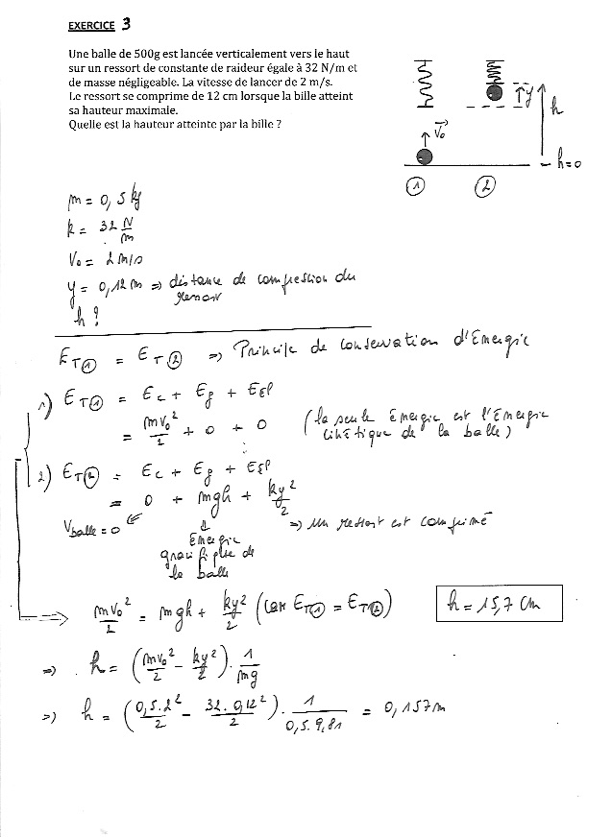 EXERCICE 3
Une balle de 500g est lancée verticalement vers le haut
sur un ressort de constante de raideur égale à 32 N/m et
de masse négligeable. La vitesse de lancer de 2 m/s.
Le ressort se comprime de 12 cm lorsque la bille atteint
sa hauteur maximale.
Quelle est la hauteur atteinte par la bille ?
y
h
V₀
h=0
1 2
m = 0,5 kg
k = 32 N/m
V₀ = 2 m/s
y = 0,12 m => distance de compression du
ressort
h ?
E_T① = E_T② => Principe de conservation d'Energie
1) E_T① = Ec + Eg + EEP
= mv₀²/2 + 0 + 0 (la seule énergie est l'énergie
cinétique de la balle)
2) E_T② = Ec + Eg + EEP
= 0 + mgh + ky²/2
V balle = 0 => un ressort est comprimé
Energie
de
la balle
mv₀²/2 = mgh + ky²/2 (car E_T① = E_T②)
h = 15,7 cm
=> h = (mv₀²/2 - ky²/2) · 1/mg
=> h = (0,5.2²/2 - 32.0,12²/2) · 1/0,5.9,81 = 0,157m